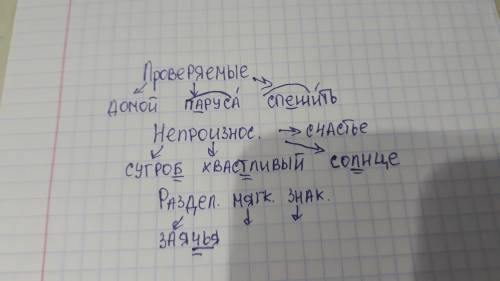 Проверяемые
домой паруса спешить
Непроизнос. счастье
сугроб хвастливый солнце
Раздел. мягк. знак.
заячья